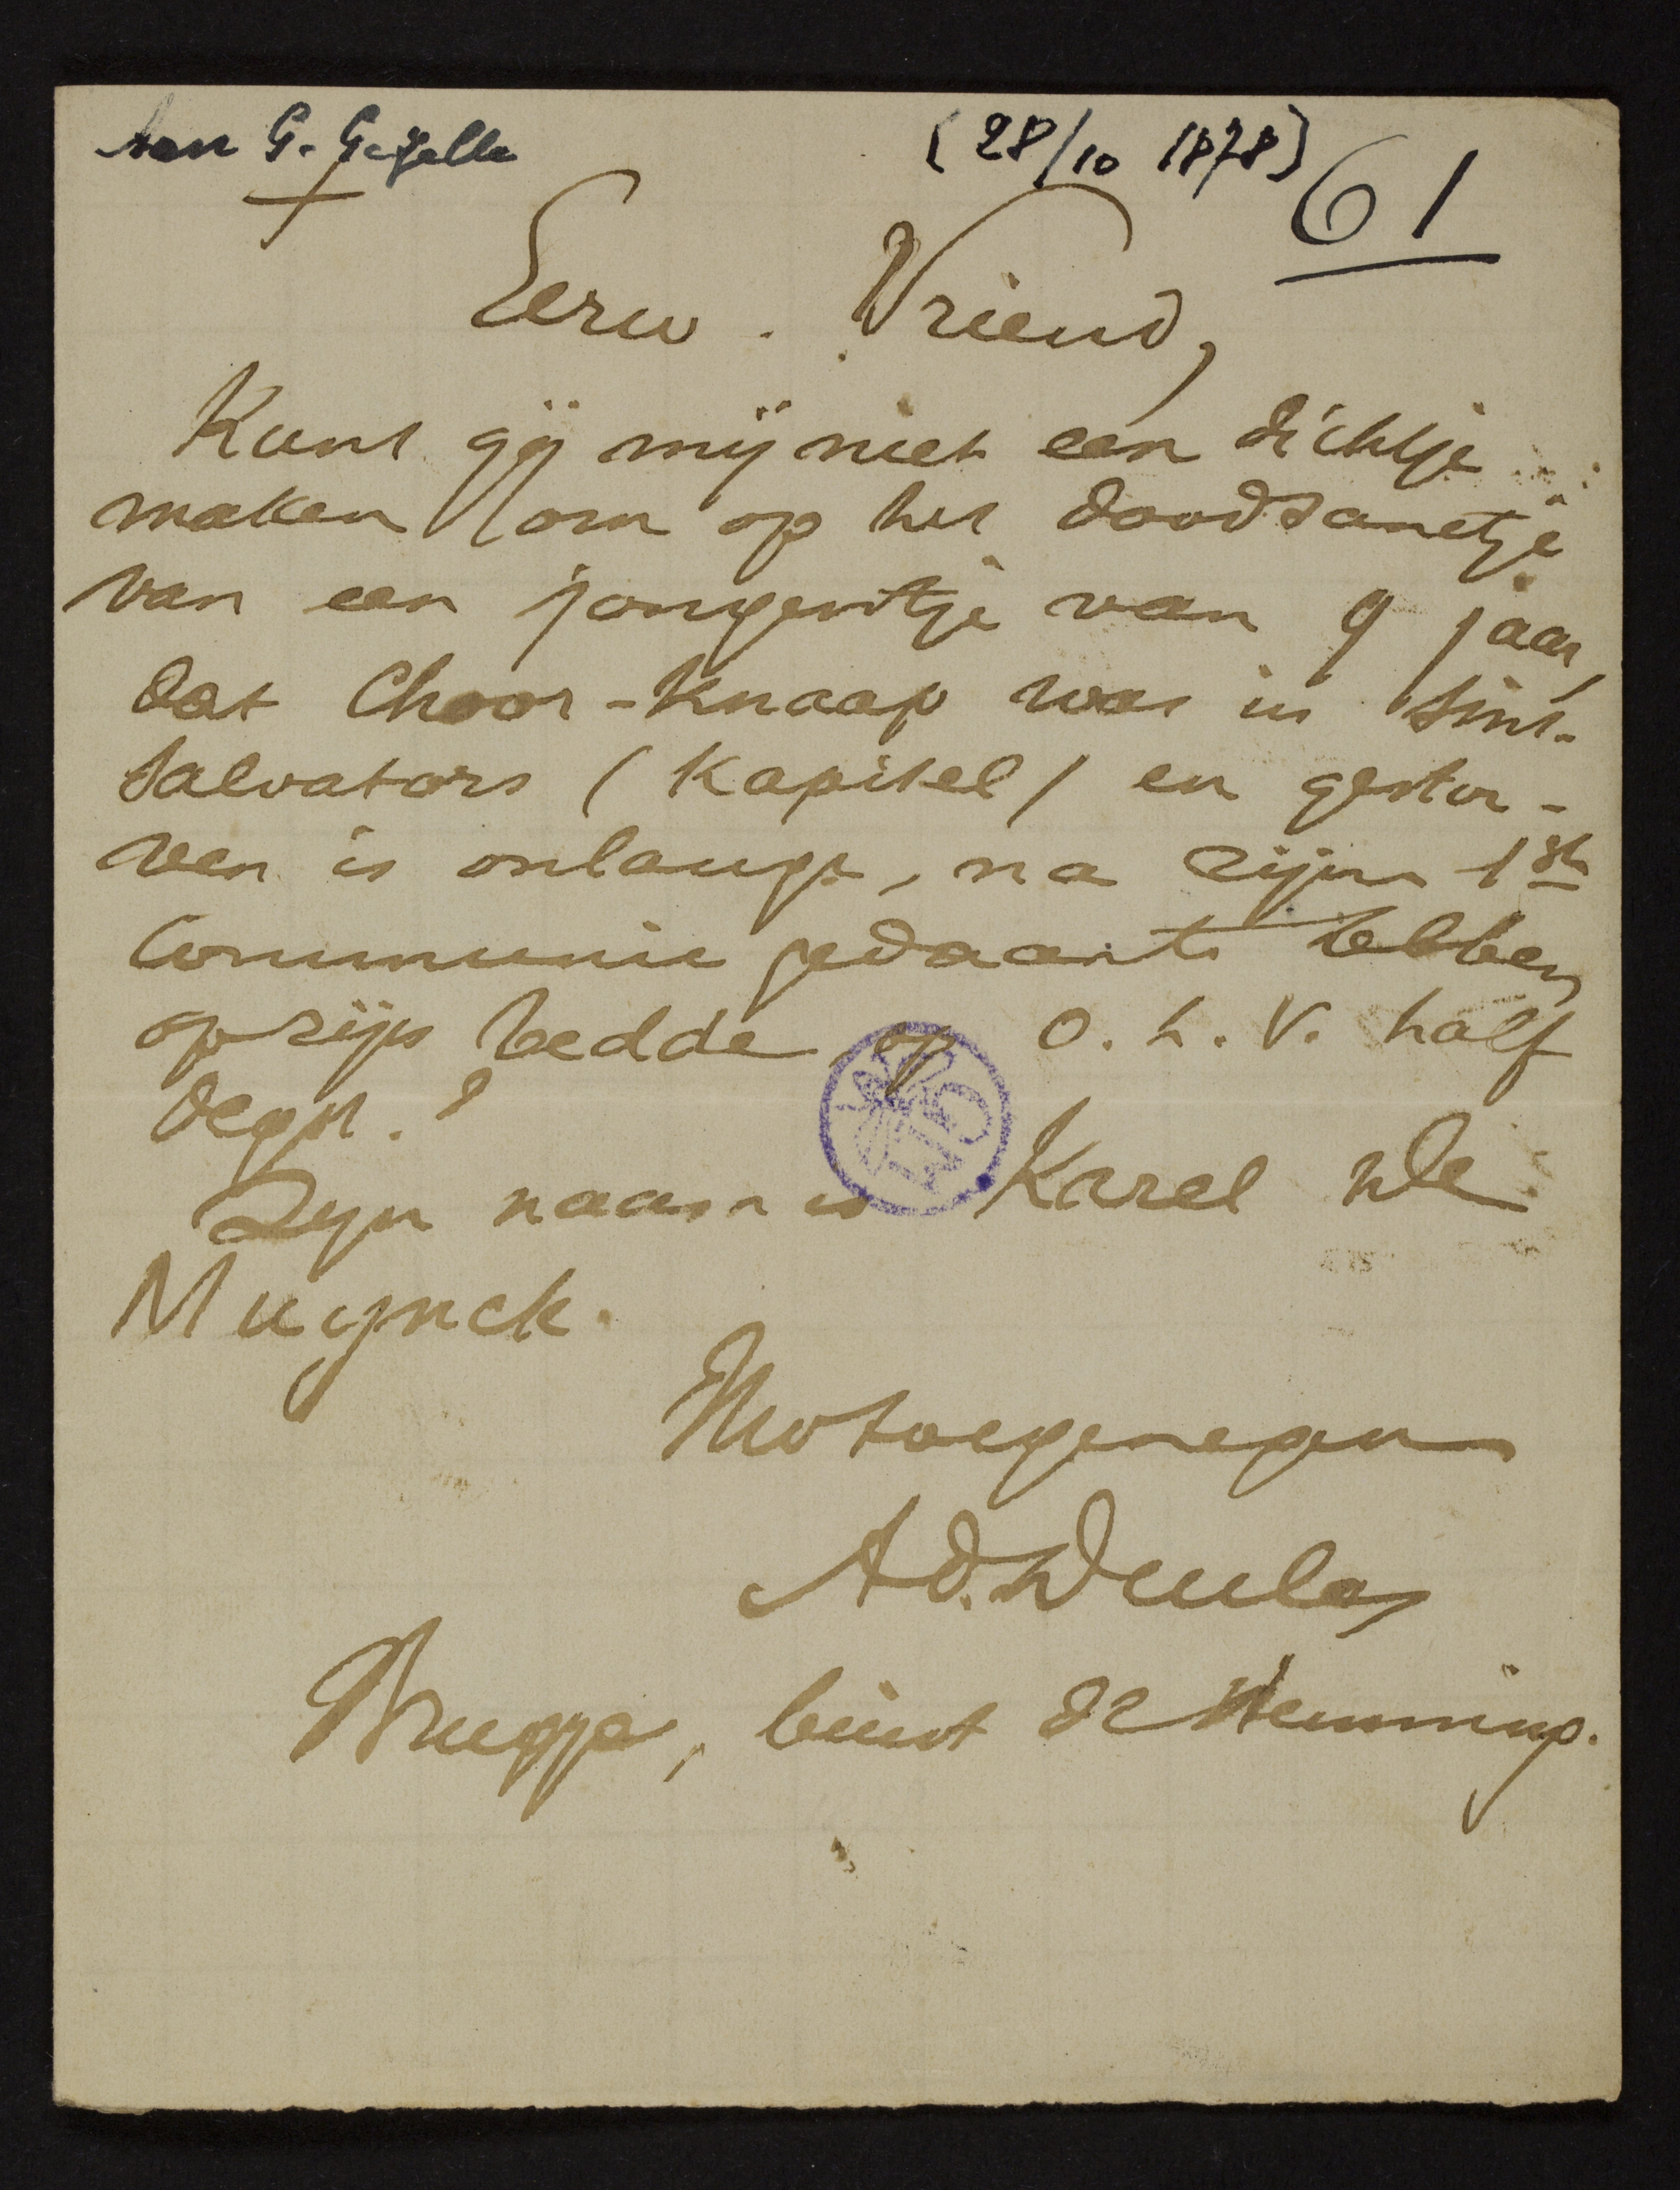 aan G. Gezelle
(28/10 1878)
61
+
Eerw. Vriend,
Kunt gij mij niet een dichtje
maken om op het doodsanctje
van een jongentje van 9 jaar,
dat Choor-Knaap was in Sint-
Salvators (Kapitel) en gestor-
ven is onlangs, na zijn 1ste
Communie gedaan te hebben
op zijn bedde op O. L. V. half
Oegst.?
Zijn naam is Karel De
Muynck.
toegenegen
Ad. Duclos
Brugge, buist de Vlemming.